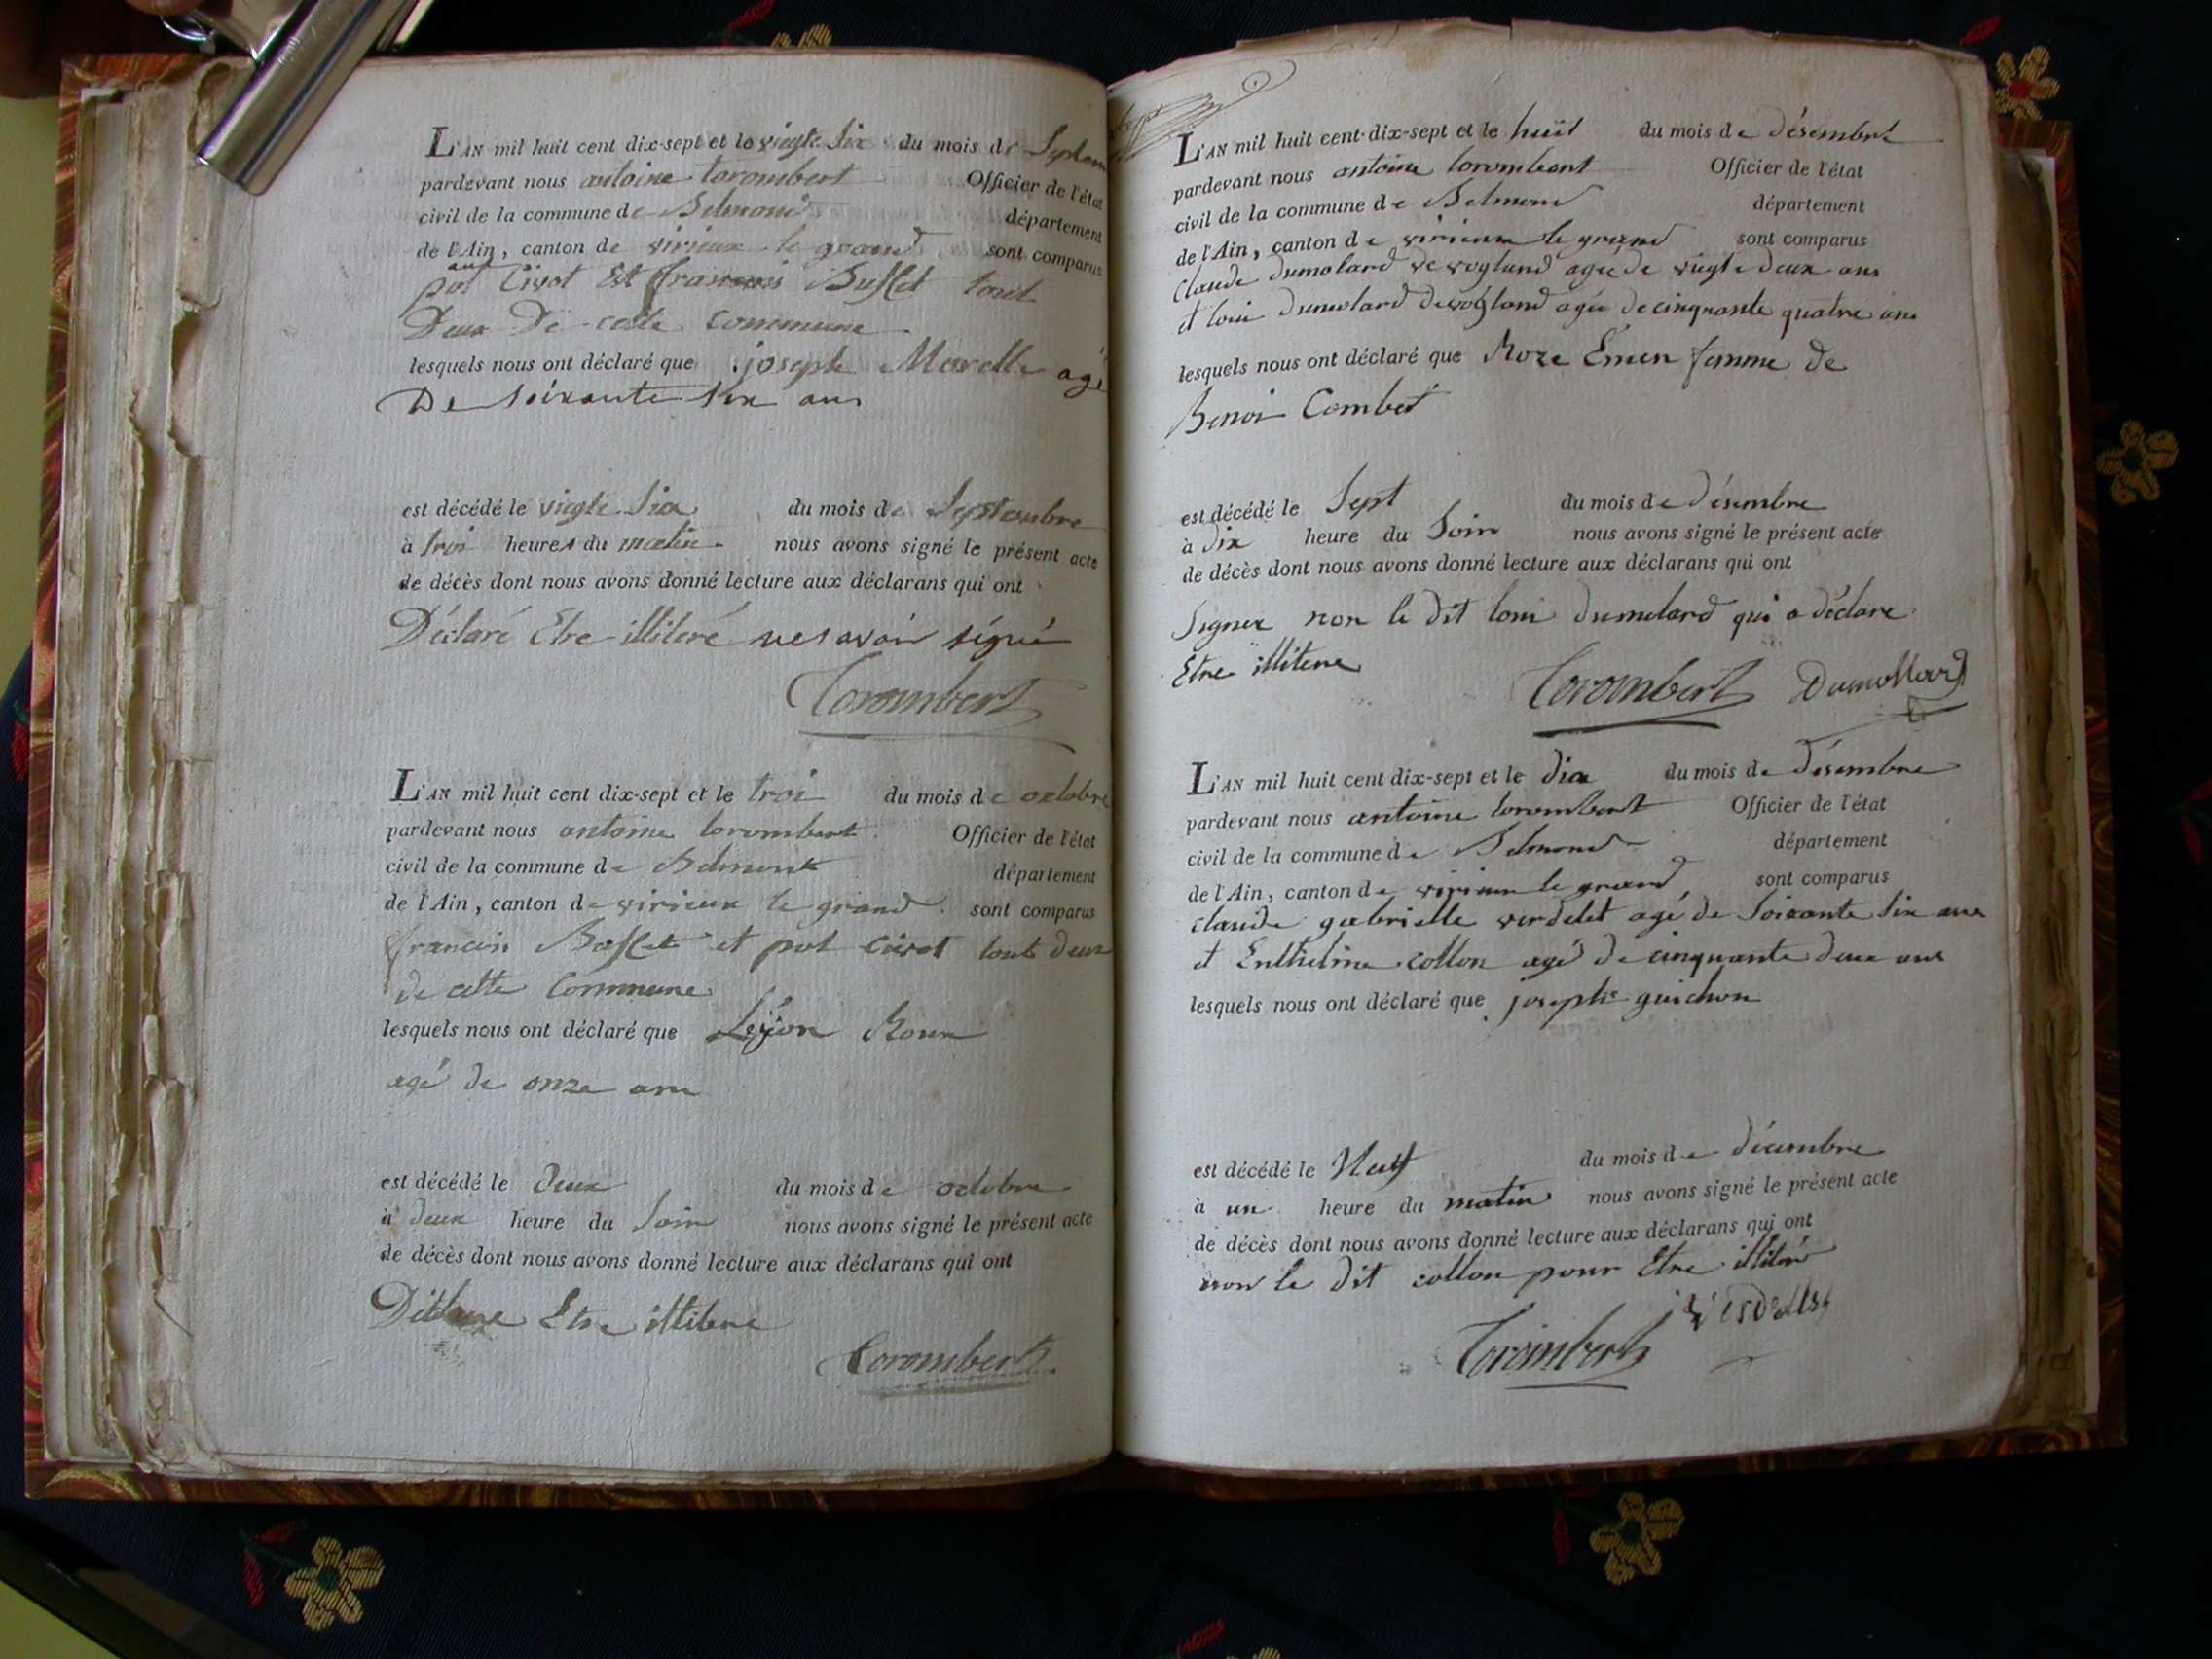 L'AN mil huit cent dix-sept et le vingte Six du mois de Septem
pardevant nous antoine torombert Officier de l'état
civil de la commune de Belmond département
de l'Ain, canton de virieux le grand sont comparus
pol Civot Et francois Busset tout
Deux De cette Commune
lesquels nous ont déclaré que joseph Morelle agé
De Soixante Six ans
est décédé le vingte Six du mois de Septambre
à troi heures du matin nous avons signé le présent acte
de décès dont nous avons donné lecture aux déclarans qui ont
Déclaré Etre illiteré ne savoir signé
Torombert
L'AN mil huit cent dix-sept et le troi du mois de octobre
pardevant nous antoine torombert Officier de l'état
civil de la commune de Belmont département
de l'Ain, canton de virieux le grand sont comparus
francois Busset et pol Civot tout deux
de cette Commune
lesquels nous ont déclaré que Roux
agé de onze ans
est décédé le deux du mois de octobre
à deux heure du Soir nous avons signé le présent acte
de décès dont nous avons donné lecture aux déclarans qui ont
Déclare Etre illitere
Torombert
Sept
L'AN mil huit cent dix-sept et le huit du mois de désembre
pardevant nous antoine torombert Officier de l'état
civil de la commune de Belmond département
de l'Ain, canton de virieux le grand sont comparus
Claude dumolard de vogland agée de vingte deux ans
et loui dumolard de vogland agée de cinquante quatre ans
lesquels nous ont déclaré que Roze Emen femme de
Benoi Combet
est décédé le Sept du mois de désembre
à dix heure du Soir nous avons signé le présent acte
de décès dont nous avons donné lecture aux déclarans qui ont
Signer non le dit loui dumolard qui a déclare
Etre illitere
Torombert Dumollard
L'AN mil huit cent dix-sept et le dix du mois de désembre
pardevant nous antoine torombert Officier de l'état
civil de la commune de Belmond département
de l'Ain, canton de virieux le grand sont comparus
claude gabrielle verdelet agé de Soixante Six ans
et collon agé de cinquante deux ans
lesquels nous ont déclaré que joseph guichon
est décédé le Neuf du mois de décembre
à un heure du matin nous avons signé le présent acte
de décès dont nous avons donné lecture aux déclarans qui ont
non le dit collon pour Etre illitéré
Torombert